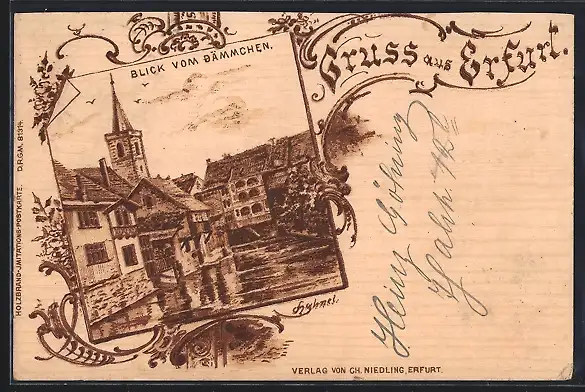 BLICK VOM DÄMMCHEN.
Gruss aus Erfurt.
HOLZBRAND-IMITATIONS-POSTKARTE. D.R.G.M. 81314.
Heinz Göhring
VERLAG VON CH. NIEDLING, ERFURT.